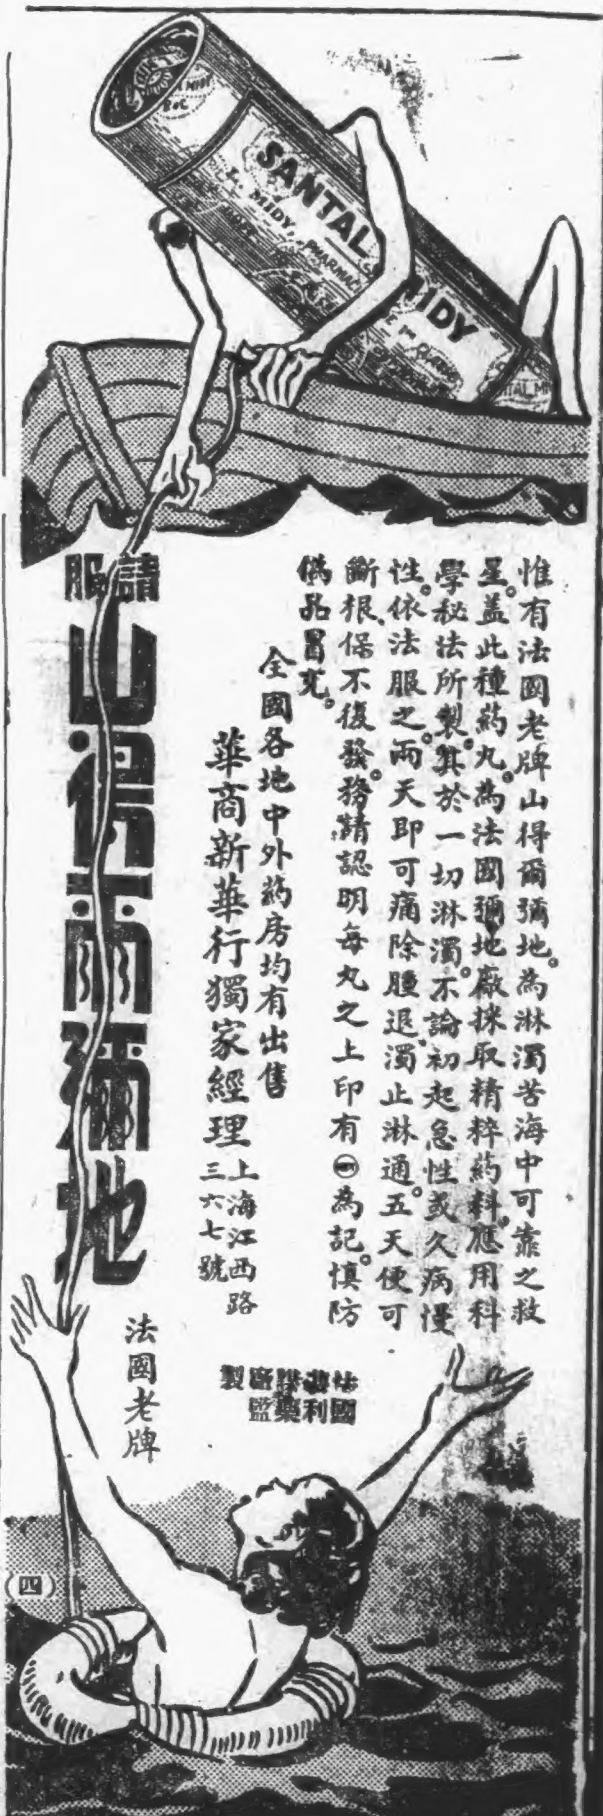 SANTAL MIDY
L. MIDY, PHARMAC
惟有法國老牌山得爾彌地。為淋濁苦海中可靠之救
星。蓋此種葯丸。為法國彌地廠採取精粹葯料。應用科
學秘法所製。其於一切淋濁。不論初起急性或久病慢
性。依法服之。兩天即可痛除腫退。濁止淋通。五天便可
斷根。保不復發。務請認明每丸之上印有 為記。慎防
偽品冒充。
全國各地中外葯房均有出售
華商新華行獨家經理
上海江西路
三六七號
請服
山得爾彌地
法國老牌
法國
利
藥
廠監
製
(四)